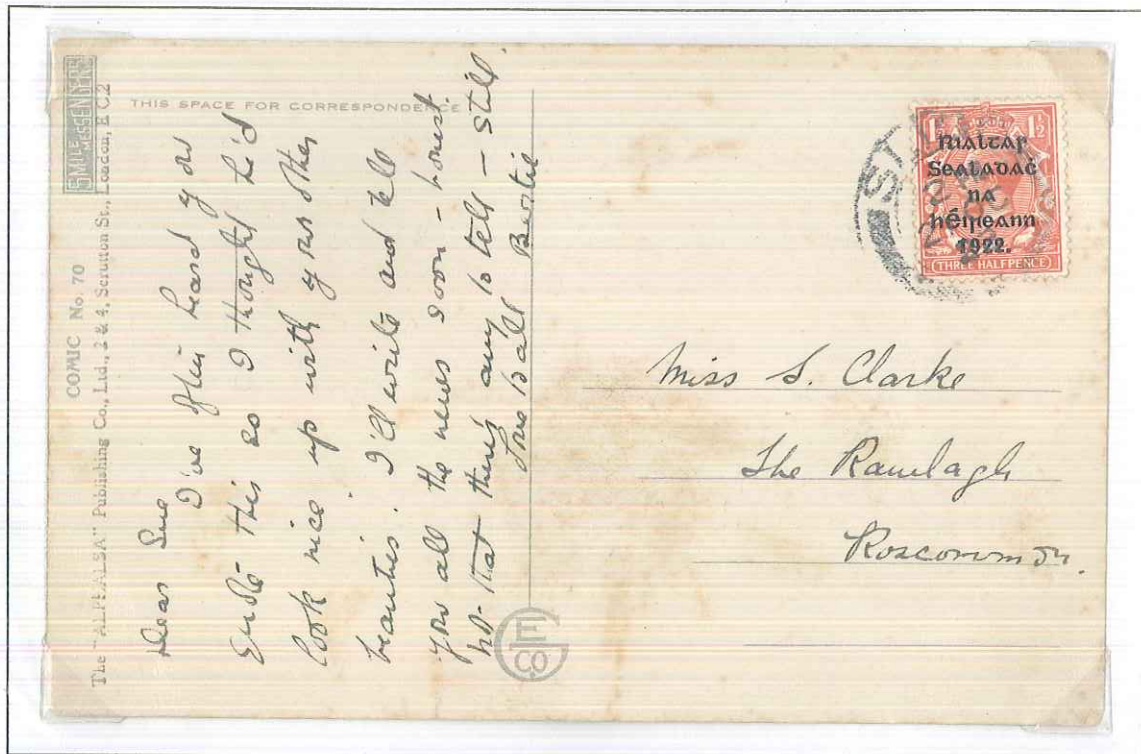 SMILE MESSENGERS
COMIC No. 70
The "ALPHALSA" Publishing Co., Ltd., 2 & 4, Scrutton St., London, E C.2
THIS SPACE FOR CORRESPONDENCE
Dear Sue
I've often heard you
this so I thought he'd
look nice up with your other
beauties. I'll write and tell
you all the news soon - honest.
not that there's any to tell - still.
Love to all Bertie
E
Co
1½ 1½
Rialtar
Sealadaċ
na
hÉireann
1922.
THREE HALFPENCE
Miss S. Clarke
The Ranelagh
Roscommon.